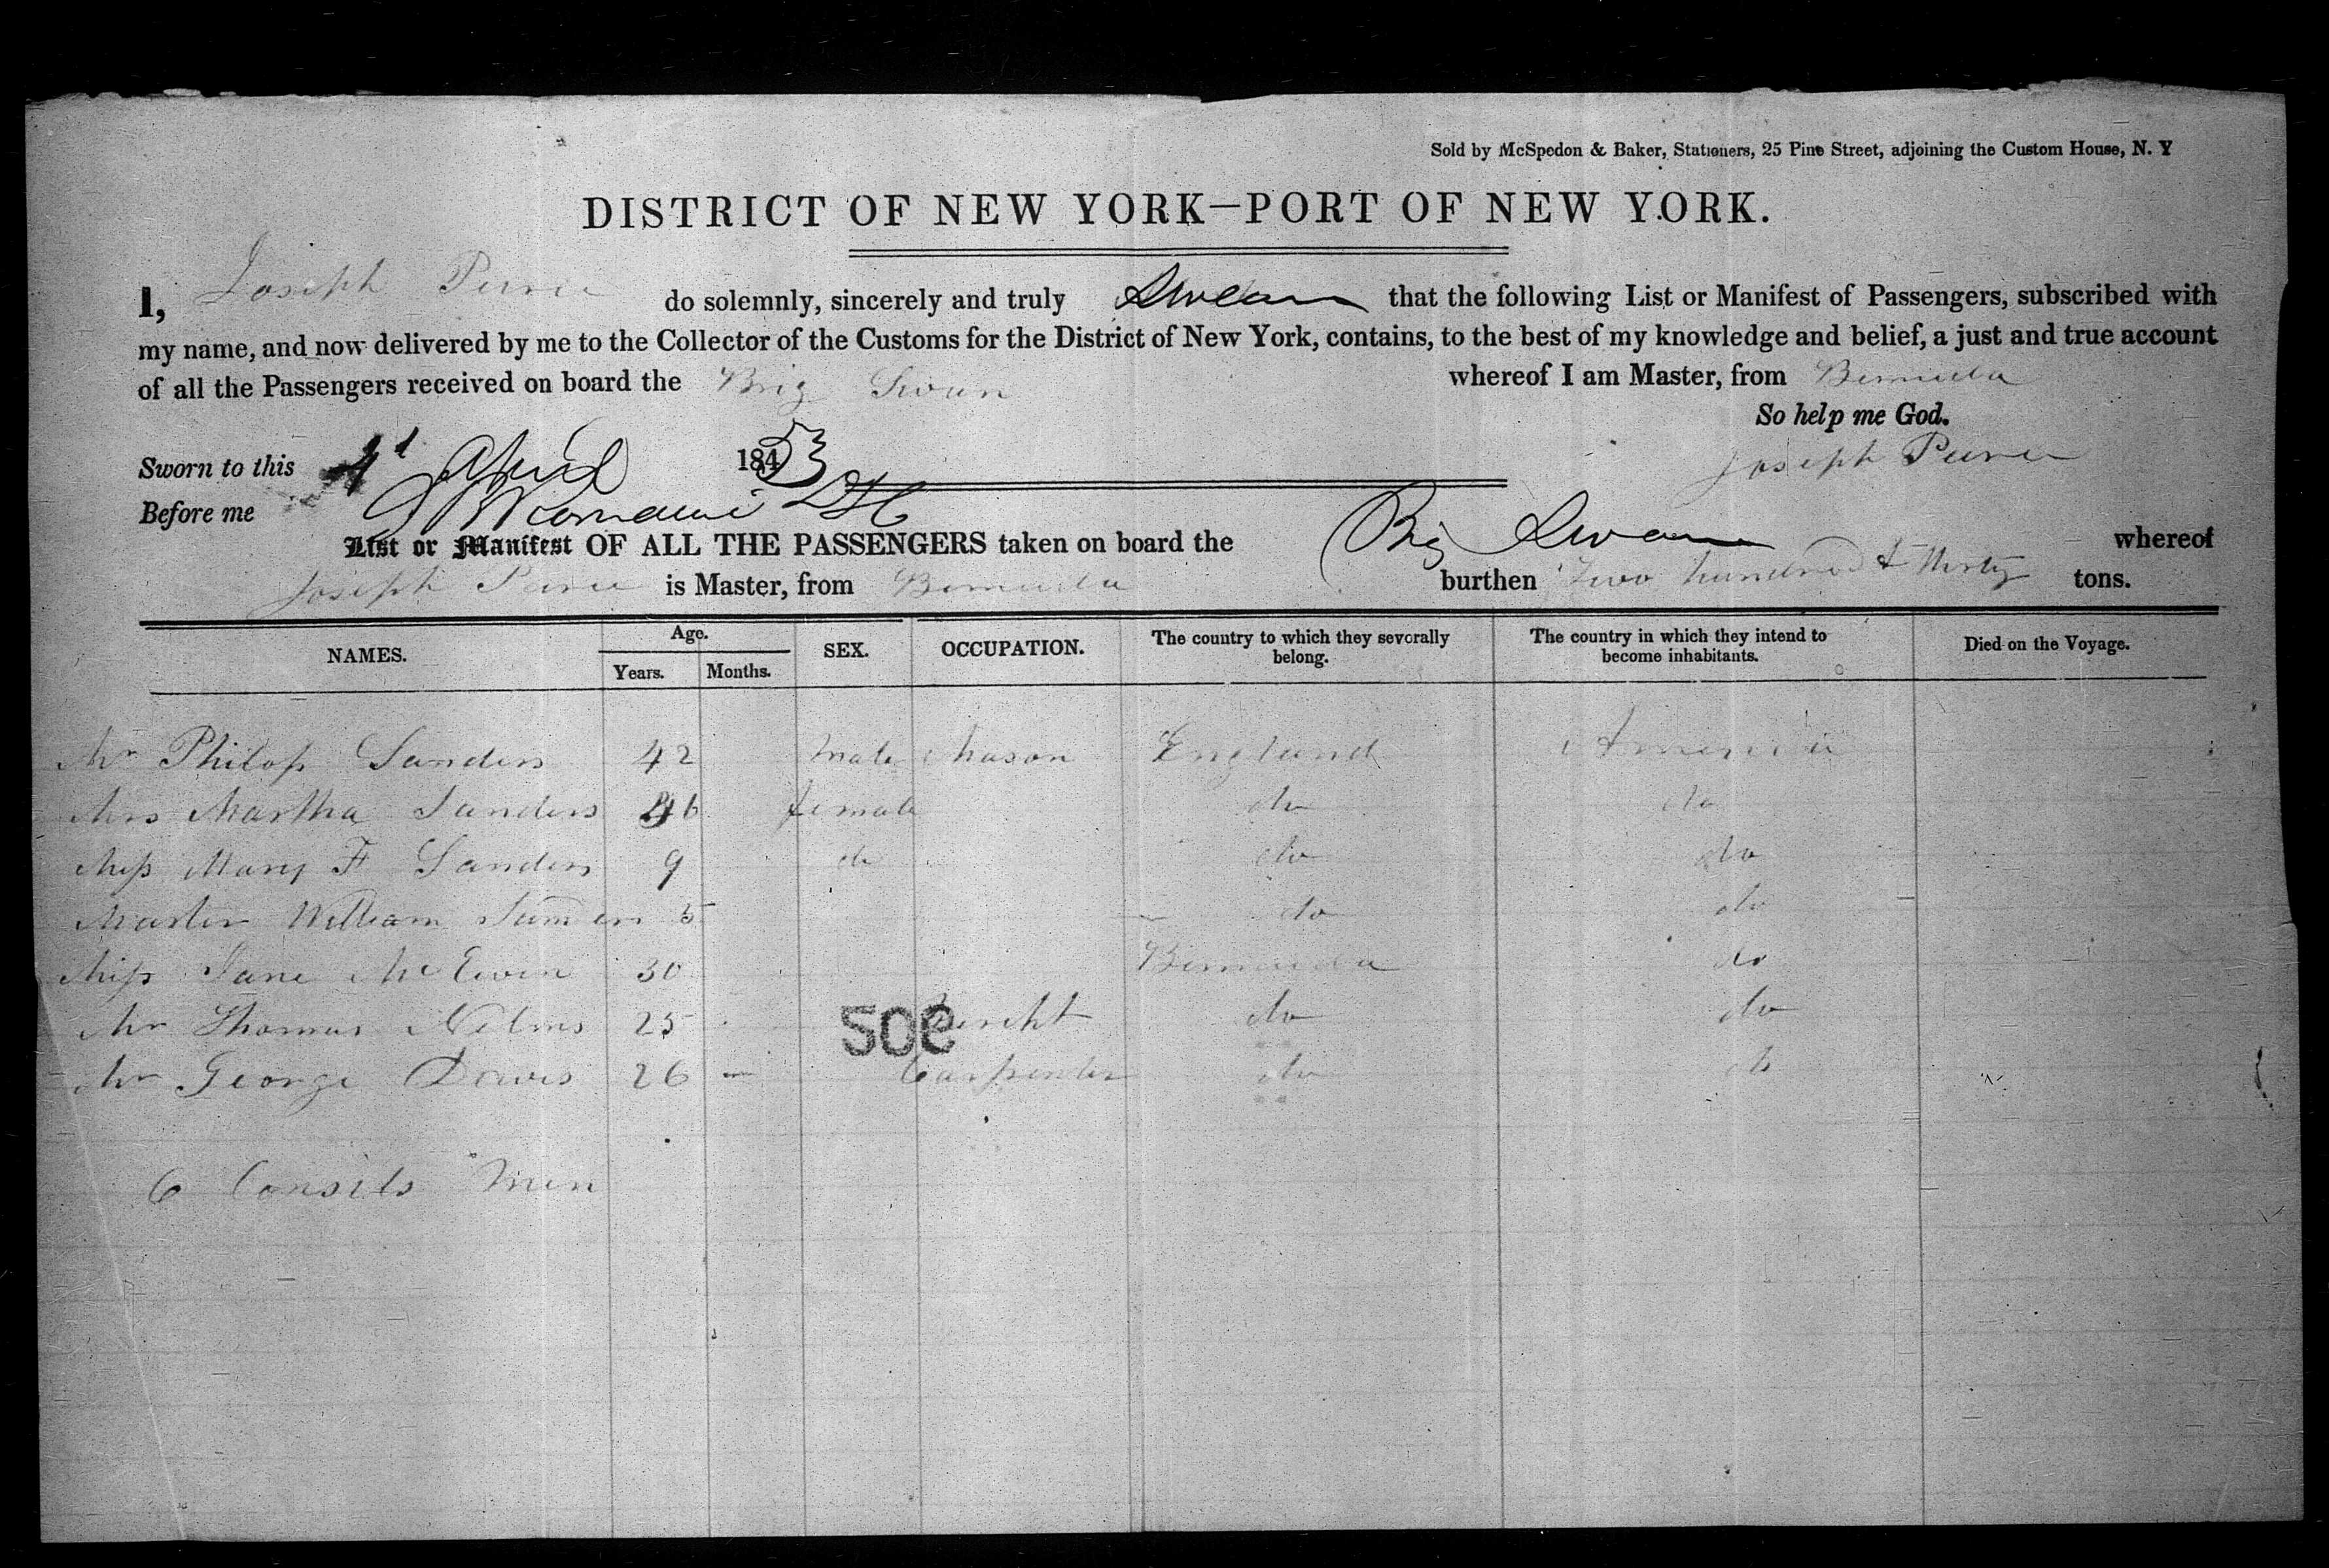 Sold by McSpedon & Baker, Stationers, 25 Pine Street, adjoining the Custom House, N. Y
DISTRICT OF NEW YORK—PORT OF NEW YORK.
I, Joseph do solemnly, sincerely and truly Swear that the following List or Manifest of Passengers, subscribed with
my name, and now delivered by me to the Collector of the Customs for the District of New York, contains, to the best of my knowledge and belief, a just and true account
of all the Passengers received on board the Brig Swan whereof I am Master, from Bermuda
So help me God.
Sworn to this 4 April 1853
Joseph
Before me
List or Manifest OF ALL THE PASSENGERS taken on board the Brig Swan whereof
Joseph is Master, from Bermuda burthen Two hundred & thirty tons.
NAMES. Age. Years. Months. SEX. OCCUPATION. The country to which they severally belong. The country in which they intend to become inhabitants. Died on the Voyage.
Mr Philop Sanders 42 male Mason England America
Mrs Martha Sanders female do do
Miss Mary F Sanders 9 do do do
Master William 5 do do
Miss Jane McEwen 30 Bermuda do
Mr Thomas Nelms 25 Mercht do do
50C
Mr George Davis 26 — Carpenter do do
6 Consils Men